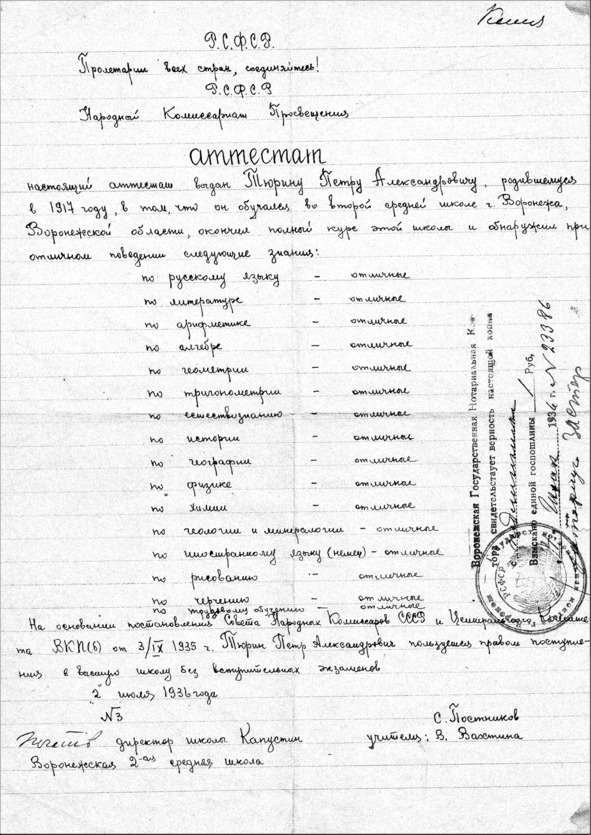 Копия
Р.С.Ф.С.Р.
Пролетарии всех стран, соединяйтесь!
Р.С.Ф.С.Р
Народной Комиссариат Просвещения
аттестат
настоящий аттестат выдан Тюрину Петру Александровичу, родившемуся
в 1917 году, в том, что он обучался во второй средней школе г. Воронежа,
Воронежской области, окончил полный курс этой школы и обнаружил при
отличном поведении следующие знания:
по русскому языку – отличные
по литературе – отличные
по арифметике – отличные
по алгебре – отличные
по геометрии – отличные
по тригонометрии – отличные
по естествознанию – отличные
по истории – отличные
по географии – отличные
по физике – отличные
по химии – отличные
по геологии и минералогии – отличные
по иностранному языку (немец) – отличные
по рисованию – отличные
по черчению – отличные
по трудовому обучению – отличные
На основании постановления Совета Народных Комиссаров СССР и Центрального Комите-
та ВКП(б) от 3/IX 1935 г. Тюрин Петр Александрович пользуется правом поступле-
ния в высшую школу без вступительных экзаменов
"2" июля 1936 года
№3
директор школы Капустин
Воронежская 2-ая средняя школа
С. Постников
учителя: В. Вахтина
Воронежская Государственная Нотариальная Кон-
тора свидетельствует верность настоящей копии
Взыскано единой госпошлины 1 Руб.
1936 г. № 23386